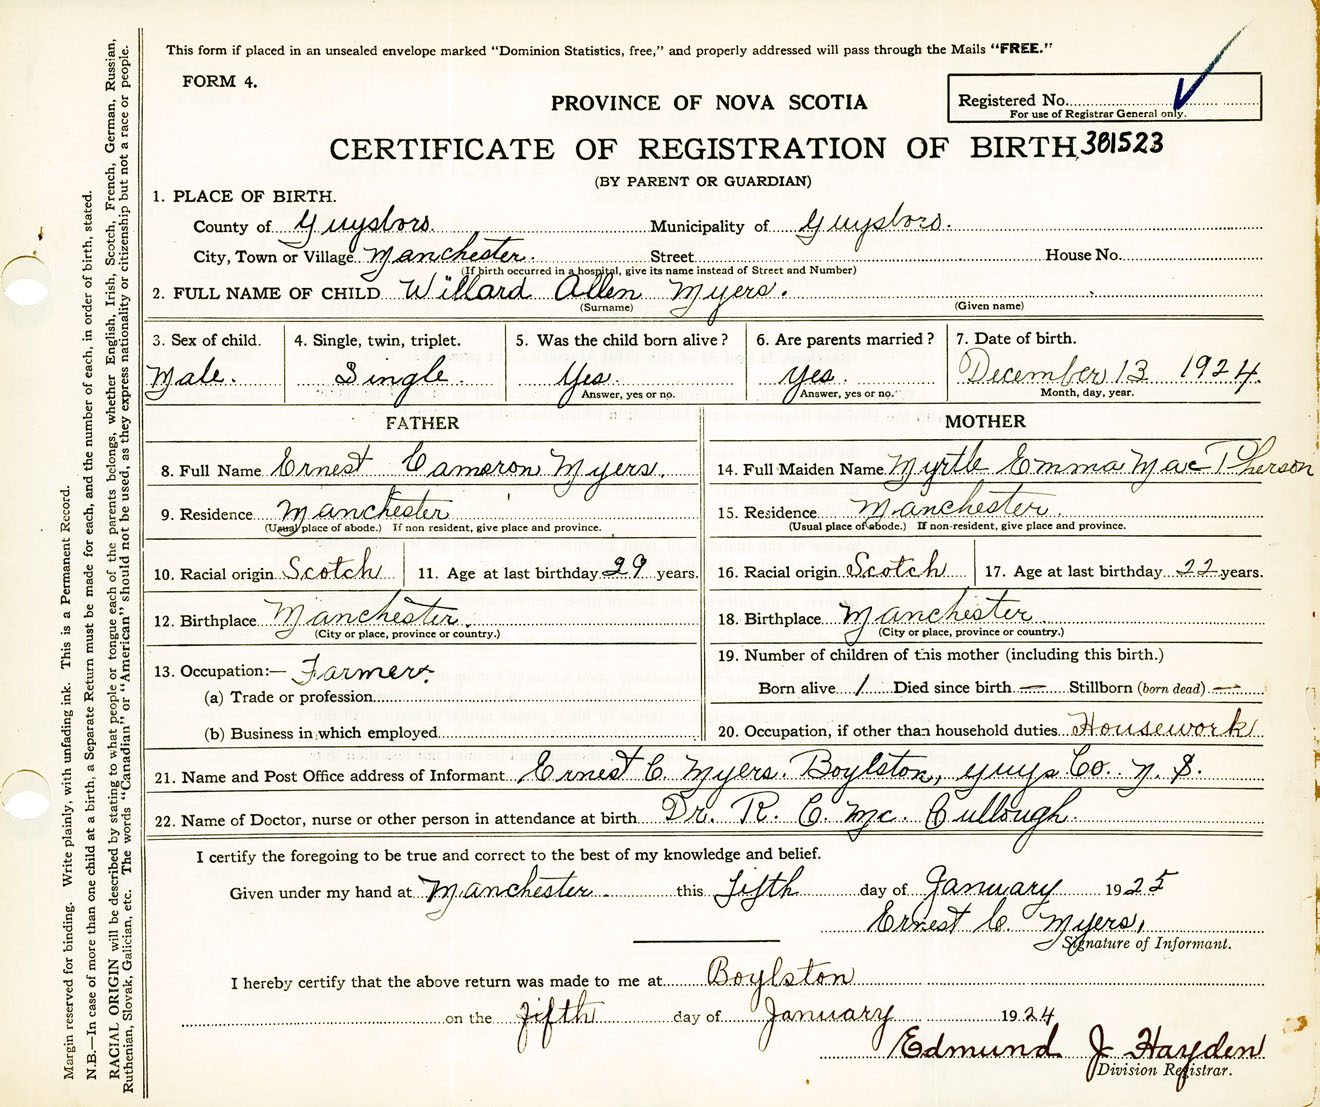 This form if placed in an unsealed envelope marked "Dominion Statistics, free," and properly addressed will pass through the Mails "FREE."
FORM 4.
PROVINCE OF NOVA SCOTIA
Registered No.
For use of Registrar General only.
CERTIFICATE OF REGISTRATION OF BIRTH 381523
(BY PARENT OR GUARDIAN)
1. PLACE OF BIRTH.
County of Guysboro. Municipality of Guysboro.
City, Town or Village Manchester. Street House No.
(If birth occurred in a hospital, give its name instead of Street and Number)
2. FULL NAME OF CHILD Willard Allen Myers.
(Surname) (Given name)
3. Sex of child. 4. Single, twin, triplet. 5. Was the child born alive? 6. Are parents married? 7. Date of birth.
Male. Single. Yes. Yes. December 13 1924.
Answer, yes or no. Answer, yes or no. Month, day, year.
FATHER MOTHER
8. Full Name Ernest Cameron Myers. 14. Full Maiden Name Myrtle Emma MacPherson
9. Residence Manchester 15. Residence Manchester.
(Usual place of abode.) If non resident, give place and province. (Usual place of abode.) If non-resident, give place and province.
10. Racial origin Scotch 11. Age at last birthday 29 years. 16. Racial origin Scotch 17. Age at last birthday 22 years.
12. Birthplace Manchester. 18. Birthplace Manchester.
(City or place, province or country.) (City or place, province or country.)
13. Occupation:— Farmer. 19. Number of children of this mother (including this birth.)
(a) Trade or profession Born alive 1 Died since birth — Stillborn (born dead) —
(b) Business in which employed 20. Occupation, if other than household duties Housework
21. Name and Post Office address of Informant Ernest C. Myers. Boylston, Guys Co. N. S.
22. Name of Doctor, nurse or other person in attendance at birth Dr. R. C. Mc. Cullough.
I certify the foregoing to be true and correct to the best of my knowledge and belief.
Given under my hand at Manchester this fifth day of January 1925
Ernest C. Myers,
Signature of Informant.
I hereby certify that the above return was made to me at Boylston
on the fifth day of January 1924
Edmund J Hayden
Division Registrar.
Margin reserved for binding. Write plainly, with unfading ink. This is a Permanent Record.
N.B.—In case of more than one child at a birth, a Separate Return must be made for each, and the number of each, in order of birth, stated.
RACIAL ORIGIN will be described by stating to what people or tongue each of the parents belongs, whether English, Irish, Scotch, French, German, Russian,
Ruthenian, Slovak, Galician, etc. The words "Canadian" or "American" should not be used, as they express nationality or citizenship but not a race or people.